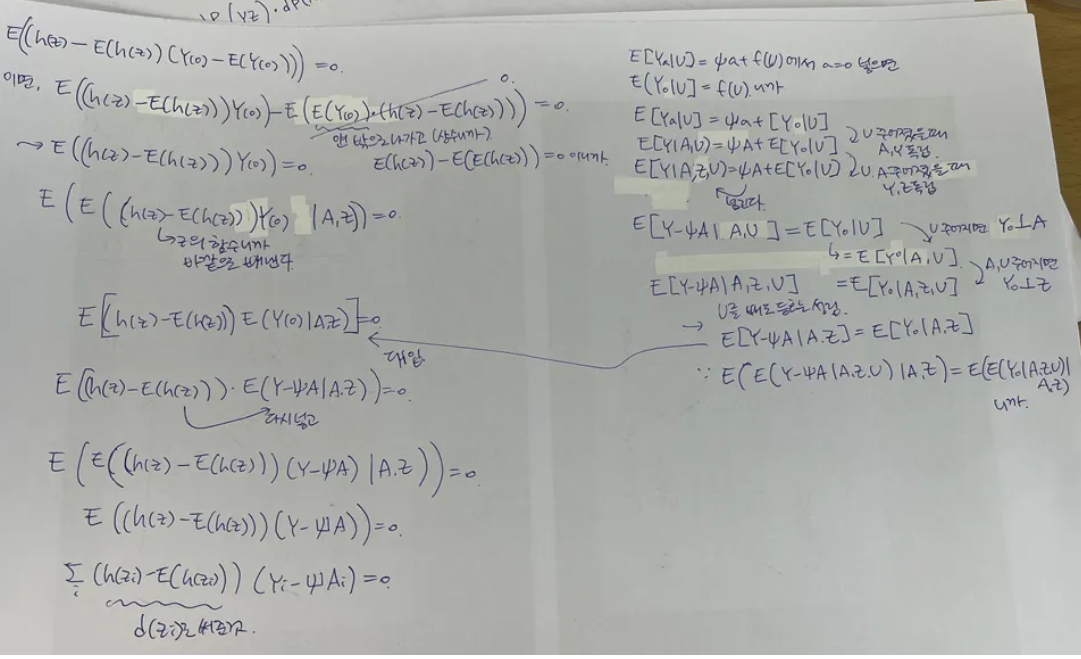 P(YZ)·dP(
E((h(z)-E(h(z))(Y(0)-E(Y(0))))=0.
이면, E((h(z)-E(h(z)))Y(0))-E(E(Y(0))·(h(z)-E(h(z))))=0.
0.
맨 밖으로 나가고 (상수니까)
E(h(z))-E(E(h(z)))=0 이니까.
→ E((h(z)-E(h(z)))Y(0))=0.
E(E((h(z)-E(h(z)))Y(0) | A,z))=0.
↳z의 함수니까
바깥으로 빼낸다.
E[(h(z)-E(h(z))) E(Y(0)|A,z)]=0
대입
E((h(z)-E(h(z)))·E(Y-ψA|A.z))=0.
다시넣고
E(E((h(z)-E(h(z)))(Y-ψA)|A.z))=0.
E((h(z)-E(h(z)))(Y-ψA))=0.
Σi (h(zi)-E(h(zi)))(Yi-ψAi)=0
d(zi)로
E[Ya|U]=ψa+f(U)에서 a=0 넣으면
E(Y₀|U]=f(U).니까
E[Ya|U]=ψa+[Y₀|U]
E[Y|A,U)=ψA+E[Y₀|U] U주어졌을때 A,Y독립.
E[Y|A,z,U)=ψA+E[Y₀|U) U.A주어졌을때 Y,z독립
넘긴다.
E[Y-ψA|A,U]=E[Y₀|U] U주어지면 Y₀⊥A
↳=E[Y₀|A,U].
E[Y-ψA|A,z,U] =E[Y₀|A,z,U] A,U주어지면 Y₀⊥z
U를 빼도 등호는 성립.
→ E[Y-ψA|A.z]=E[Y₀|A.z]
∵ E(E(Y-ψA|A.z.U)|A,z)=E(E(Y₀|A.z.U)|A,z)
니까.